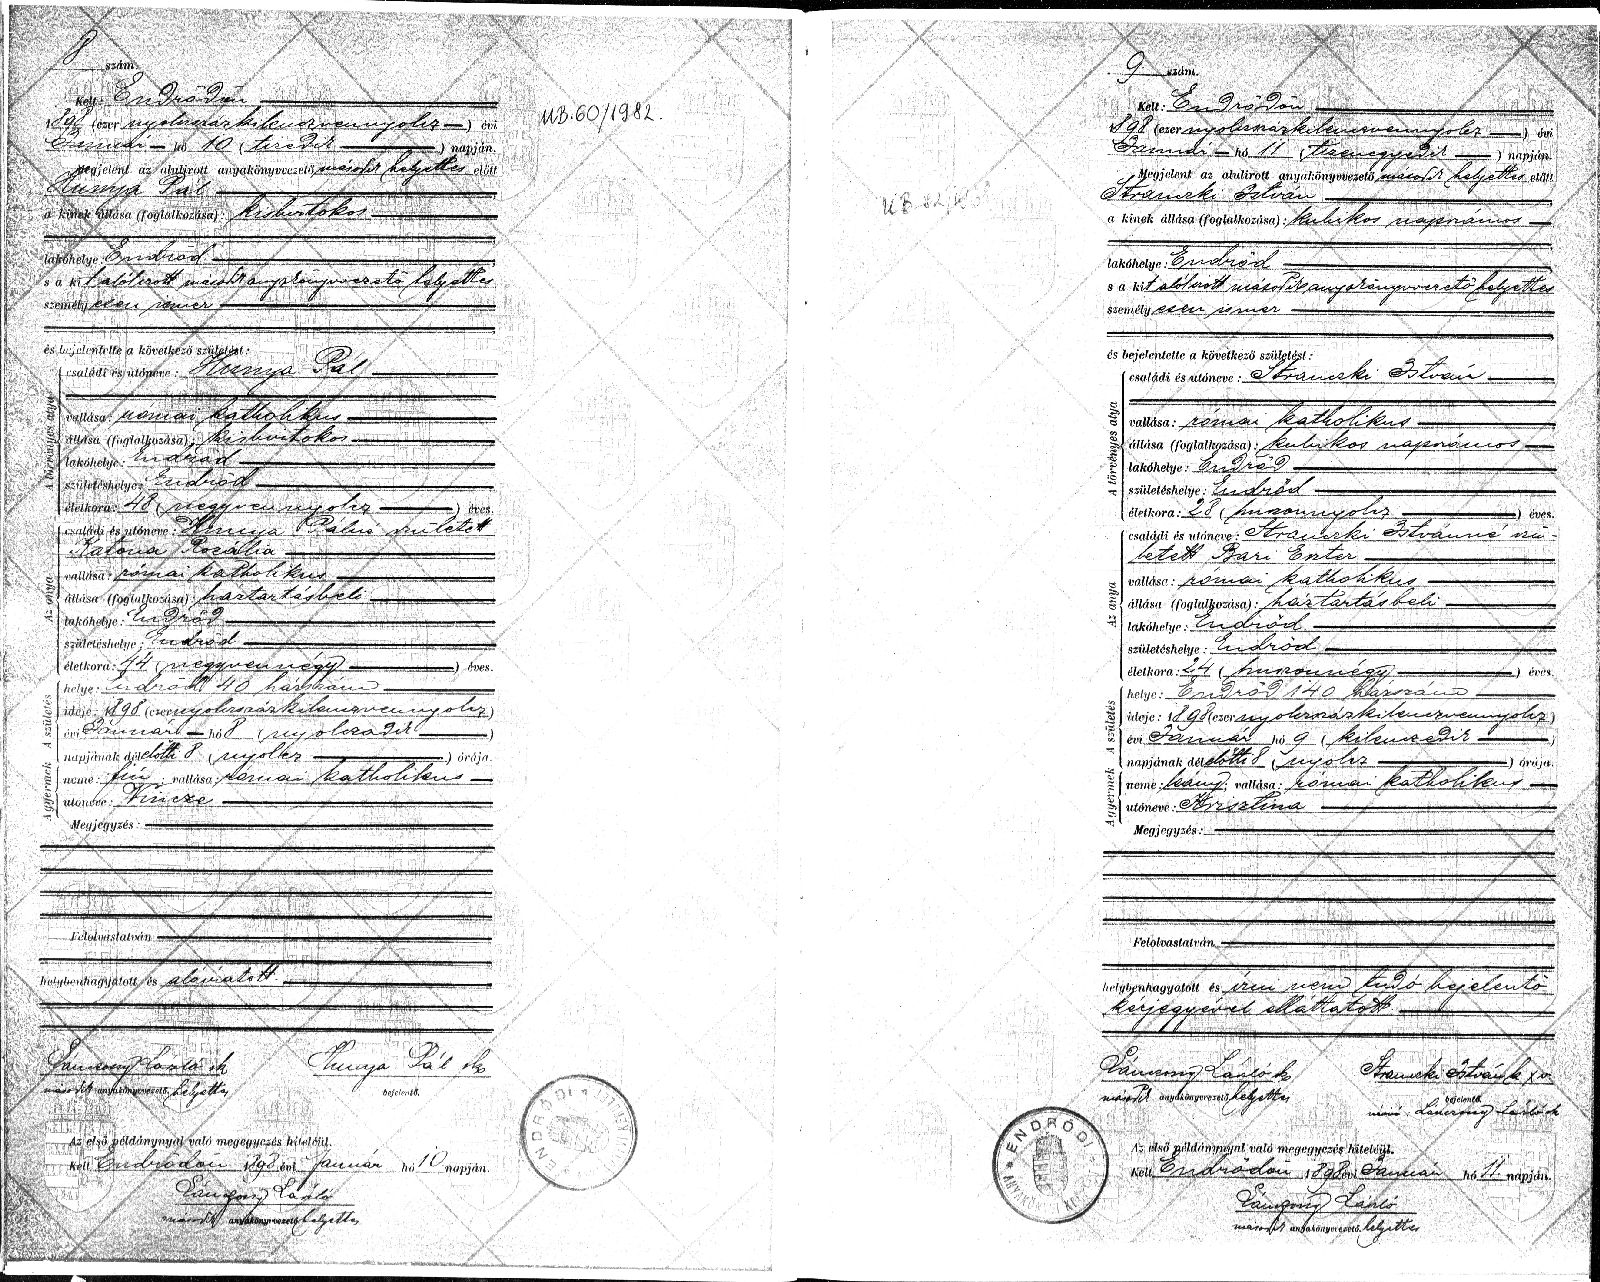 8 szám.
Kelt: Endrődön
1898 (ezer nyolczszázkilenczvennyolcz) évi
Januái hó 10 (tizedik) napján.
Megjelent az alulirott anyakönyvezető második helyettes előtt
Hunya Pál
a kinek állása (foglalkozása): kisbirtokos
lakóhelye: Endrőd
s a kit alólirott második anyakönyvvezető helyettes
személyesen ismer
és bejelentette a következő születést:
A törvényes atya
családi és utóneve: Hunya Pál
vallása: római katholikus
állása (foglalkozása): kisbirtokos
lakóhelye: Endrőd
születéshelye: Endrőd
életkora: 48 (negyvennyolcz) éves.
Az anya
családi és utóneve: Hunya Pálné született
Katona Rozália
vallása: római katholikus
állása (foglalkozása): háztartásbeli
lakóhelye: Endrőd
születéshelye: Endrőd
életkora: 44 (negyvennégy) éves.
A születés
helye: Endrőd 40 házszám
ideje: 1898 (ezer nyolczszázkilenczvennyolcz)
évi Januári hó 8 (nyolczadik)
napjának délelőtti 8 (nyolcz) órája.
A gyermek
neme: fiú; vallása: római katholikus
utóneve: Vincze
Megjegyzés:
Felolvastatván
helybenhagyatott és aláíratott
Lánczony László sk
második anyakönyvvezető helyettes
Hunya Pál sk
bejelentő.
Az első példánynyal való megegyezés hiteléül.
Kelt Endrődön 1898 évi Január hó 10 napján.
Lánczony László
második anyakönyvvezető helyettes
UB.60/1982.
ENDRŐDI
9 szám.
Kelt: Endrődön
1898 (ezer nyolczszázkilenczvennyolcz) évi
Januái hó 11 (tizenegyedik) napján.
Megjelent az alulirott anyakönyvezető második helyettes előtt
Stranczki István
a kinek állása (foglalkozása): kubikos napszámos
lakóhelye: Endrőd
s a kit alólirott második anyakönyvvezető helyettes
személyesen ismer
és bejelentette a következő születést:
A törvényes atya
családi és utóneve: Stranczki István
vallása: római katholikus
állása (foglalkozása): kubikos napszámos
lakóhelye: Endrőd
születéshelye: Endrőd
életkora: 28 (huszonnyolcz) éves.
Az anya
családi és utóneve: Stranczki Istvánné szü-
letett Bari Eszter
vallása: római katholikus
állása (foglalkozása): háztartásbeli
lakóhelye: Endrőd
születéshelye: Endrőd
életkora: 24 (huszonnégy) éves.
A születés
helye: Endrőd 140 házszám
ideje: 1898 (ezer nyolczszázkilenczvennyolcz)
évi Januái hó 9 (kilenczedik)
napjának délelőtti 8 (nyolcz) órája.
A gyermek
neme: leány; vallása: római katholikus
utóneve: Krisztina
Megjegyzés:
Felolvastatván
helybenhagyatott és írni nem tudó bejelentő
kézjegyével elláttatott.
Lánczony László sk
második anyakönyvvezető helyettes
Stranczki István k x v
bejelentő.
névíró: Lánczony László sk
Az első példánynyal való megegyezés hiteléül.
Kelt Endrődön 1898 évi Januái hó 11 napján.
Lánczony László
második anyakönyvvezető helyettes
ENDRŐDI